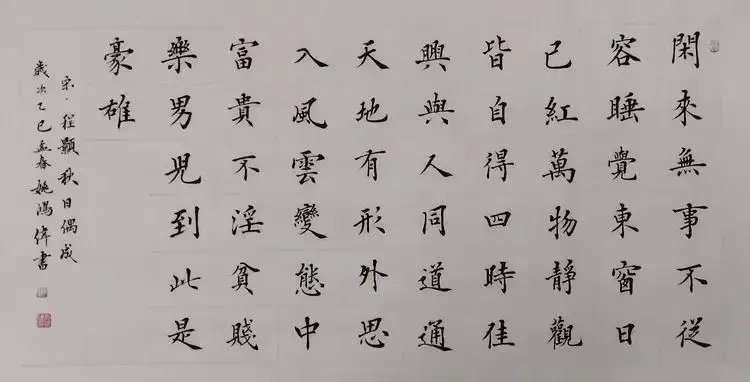 閑來無事不從
容睡覺東窗日
已紅萬物靜觀
皆自得四時佳
興與人同道通
天地有形外思
入風雲變態中
富貴不淫貧賤
樂男兒到此是
豪雄
宋·程顥秋日偶成
歲次乙巳孟春姚鴻偉書